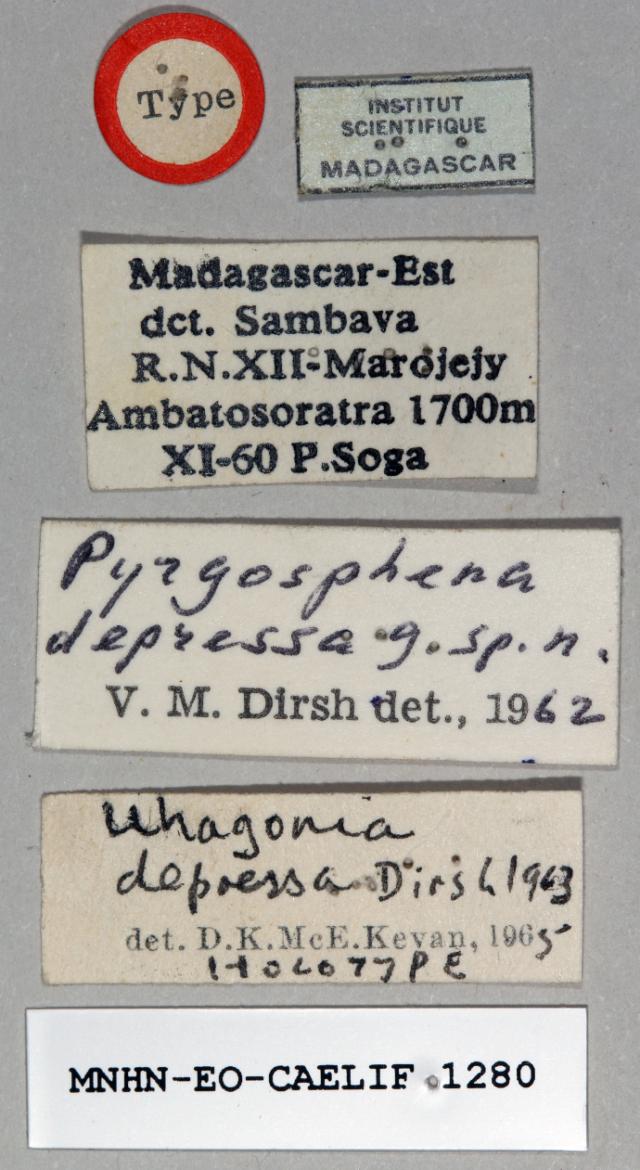 Type
INSTITUT
SCIENTIFIQUE
MADAGASCAR
Madagascar-Est
dct. Sambava
R.N.XII-Marojejy
Ambatosoratra 1700m
XI-60 P.Soga
Pyrgosphena
depressa g. sp. n.
V. M. Dirsh det., 1962
Uhagonia
depressa Dirsh 1963
det. D.K.McE.Kevan, 1965
HOLOTYPE
MNHN-EO-CAELIF 1280